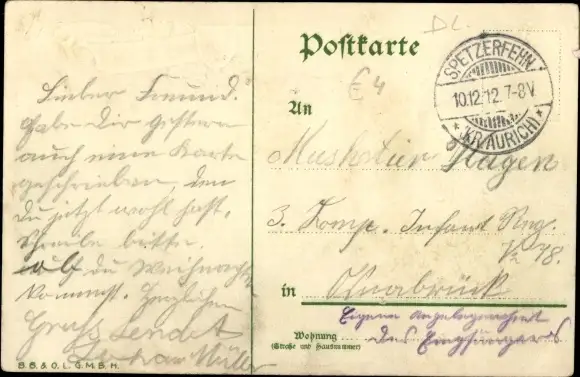 Lieber Freund.
Habe Dir gestern
auch eine Karte
geschrieben, den
du jetzt wohl hast,
schreibe bitte
ob du Weihnacht
kommst. Herzlichen
Gruss sendet
Müller
B.B.& O.L.G.M.B.H.
DL.
Postkarte
SPETZERFEHN
10.12.12.7-8V
* (KR. AURICH) *
€4
An
Musketier Hagen
3. Komp. Infant Reg.
No 78.
in Osnabrück
Eigene Angelegenheit
des Empfängers
Wohnung
(Straße und Hausnummer)